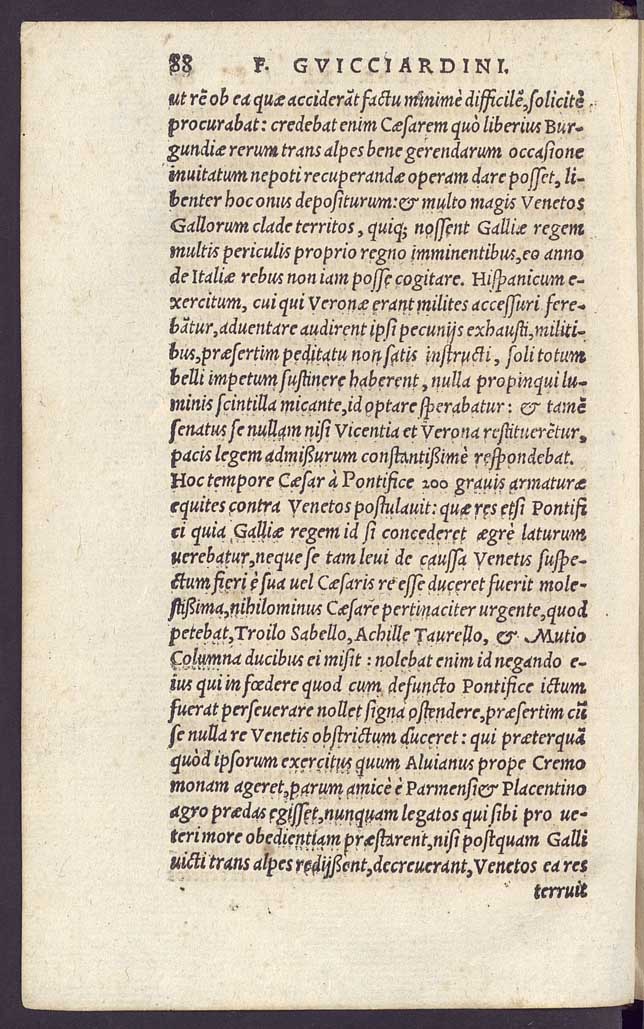 88 F. GVICCIARDINI.
ut rē ob ea quæ acciderāt factu minimè difficilē, solicitè
procurabat: credebat enim Cæsarem quò liberius Bur-
gundiæ rerum trans alpes bene gerendarum occasione
inuitatum nepoti recuperandæ operam dare posset, li-
benter hoc onus depositurum: & multo magis Venetos
Gallorum clade territos, quiq; nossent Galliæ regem
multis periculis proprio regno imminentibus, eo anno
de Italiæ rebus non iam posse cogitare. Hispanicum e-
xercitum, cui qui Veronæ erant milites accessuri fere-
bātur, aduentare audirent ipsi pecunijs exhausti, militi-
bus, præsertim peditatu non satis instructi, soli totum
belli impetum sustinere haberent, nulla propinqui lu-
minis scintilla micante, id optare sperabatur: & tamē
senatus se nullam nisi Vicentia et Verona restituerētur,
pacis legem admißurum constantißimè respondebat.
Hoc tempore Cæsar à Pontifice 200 grauis armaturæ
equites contra Venetos postulauit: quæ res etsi Pontifi
ci quia Galliæ regem id si concederet ægrè laturum
uerebatur, neque se tam leui de caussa Venetis suspe-
ctum fieri è sua uel Cæsaris re esse duceret fuerit mole-
stißima, nihilominus Cæsare pertinaciter urgente, quod
petebat, Troilo Sabello, Achille Taurello, & Mutio
Columna ducibus ei misit: nolebat enim id negando e-
ius qui in fœdere quod cum defuncto Pontifice ictum
fuerat perseuerare nollet signa ostendere, præsertim cū
se nulla re Venetis obstrictum duceret: qui præterquā
quòd ipsorum exercitus quum Aluianus prope Cremo
monam ageret, parum amicè è Parmensi & Placentino
agro prædas egisset, nunquam legatos qui sibi pro ue-
teri more obedientiam præstarent, nisi postquam Galli
uicti trans alpes redijßent, decreuerant, Venetos ea res
terruit